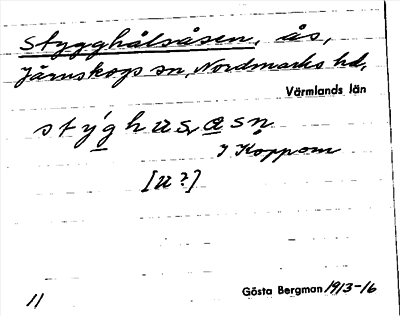 Stygghålsåsen, ås,
Järnskogs sn, Nordmarks hd,
Värmlands län
I Koppom
[u?]
Gösta Bergman 1913-16
11